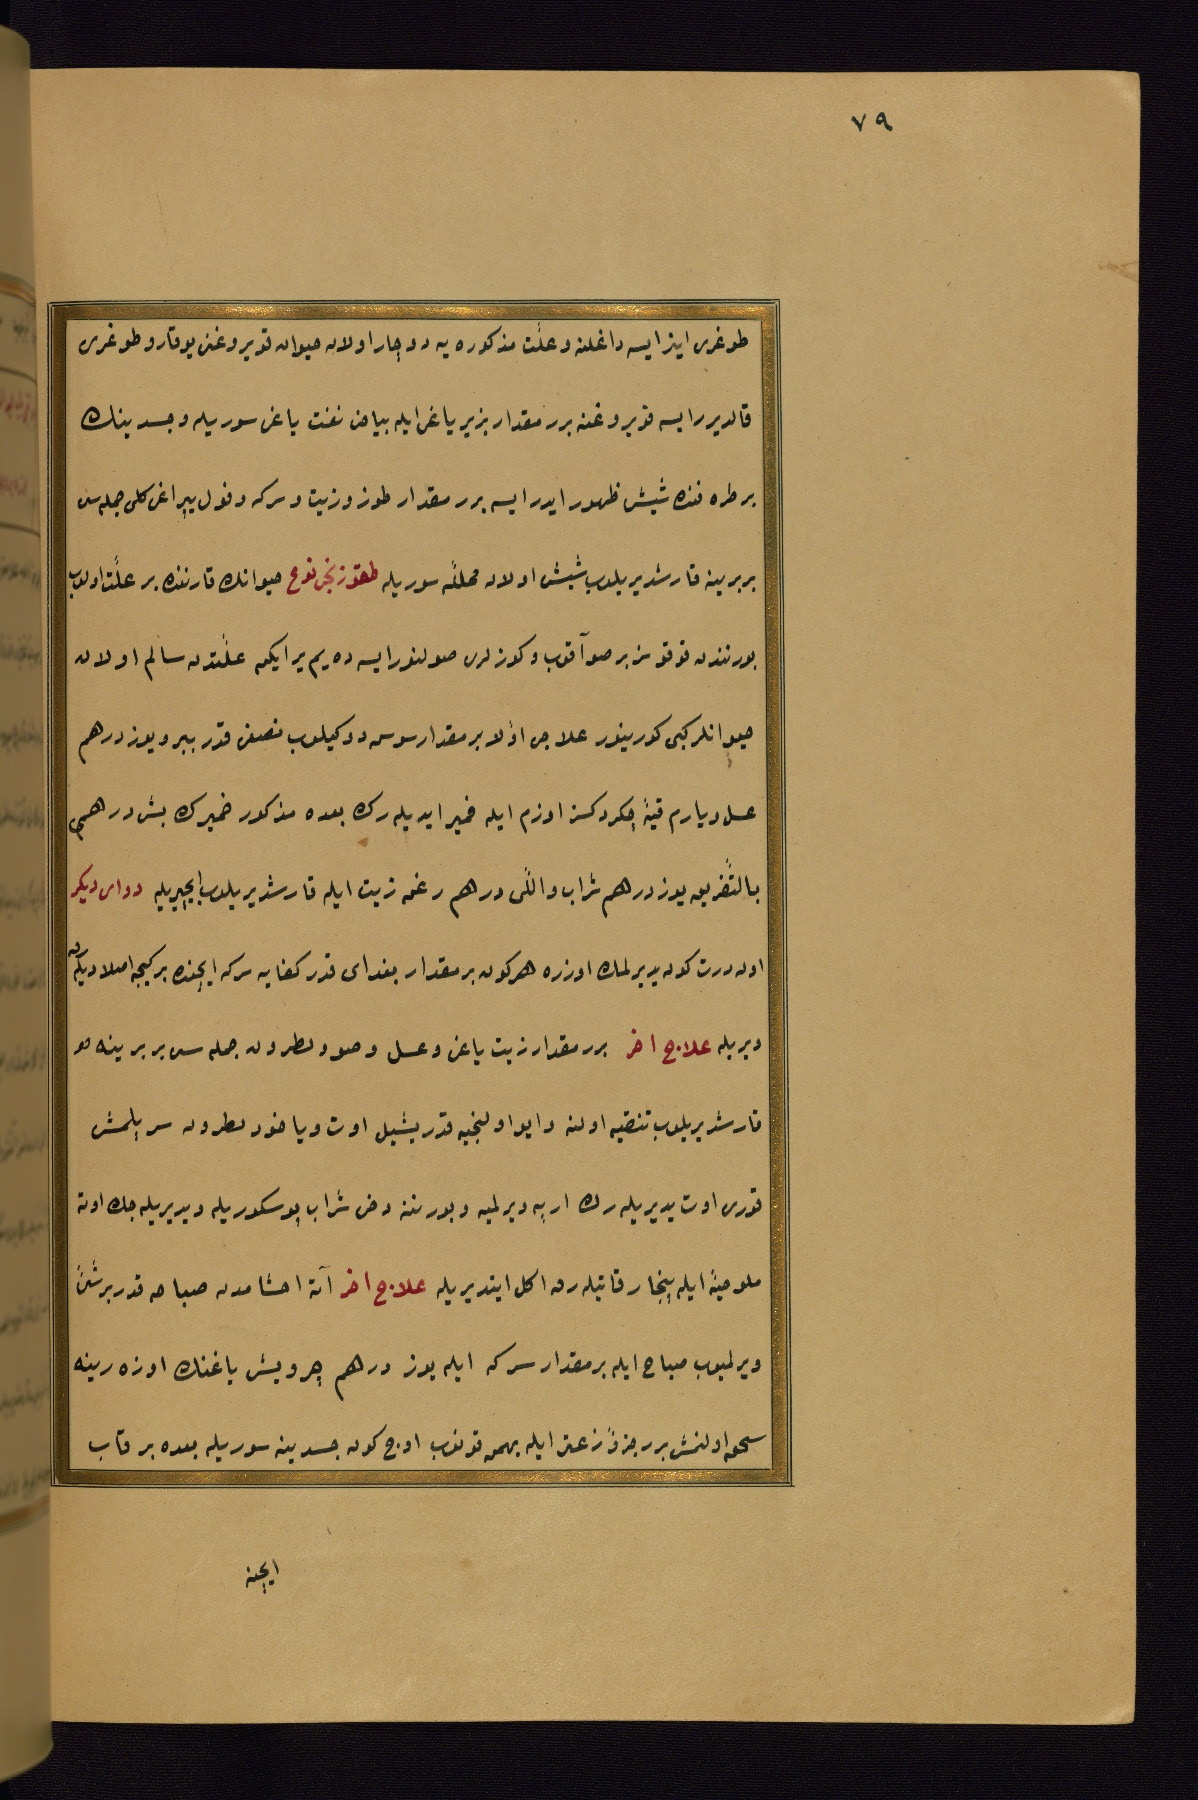 ٧٩
طوغری اینر ایسه داغلنه و علّت مذکوره یه دوچار اولان حیوان قویروغنی یوقارو طوغری
قالدیرر ایسه قویروغنه برر مقدار بزیر یاغی ایله بیاض نفت یاغی سوریله و جسدینك
بر طرفنده شیش ظهور ایدر ایسه برر مقدار طوز و زیت و سرکه و فول یپراغی کلی جمله سی
بربرینه قارشدیریلوب شیش اولان محلّنه سوریله طقوزنجی نوع حیوانك قارننده بر علّت اولوب
بورنندن قوقوسز بر صو آقوب و کوزلری صولنور ایسه ده یم یر ایکن علّتدن سالم اولان
حیوانلر کبی کورینور علاجی اوّلا بر مقدار سوسن دوکیلوب نصفی قدر ببر و یوز درهم
عسل و یارم قیّه چکردکسز اوزم ایله خمیر ایدیله رك بعده مذکور خمیرك بش درهمی
بالتّفریق یوز درهم شراب و اللّی درهم رغن زیت ایله قارشدیریلوب ایچیریله دوای دیکر
اون درت کون یدیرلمك اوزره هرکون بر مقدار بغدای قدر کفایه سرکه ایچنده بر کیجه اصلادیلدقده
ویریله علاج اخر برر مقدار زیت یاغی و عسل و صو و نطرون جمله سی بربرینه
قارشدیریلوب تنقیه اولنه و ایو اولنجیه قدر یشیل اوت و یاخود نطرون سرپلمش
قوری اوت یدیریله رك ارپه ویرلمیه و بورننه دخی شراب پوسکوریله و یدیریله جك اوته
ملوخیّه ایله پنجار قاتیله رق اکل ایتدیریله علاج اخر آته اخشامدن صباحه قدر بر شئ
ویرلمیوب صباح ایله بر مقدار سرکه ایله یوز درهم چرویش یاغنك اوزه رینه
سحق اولنمش برر جزؤ زعتر ایله بهمن قونوب اوچ کون جسدینه سوریله بعده بر قاب
ایچنه